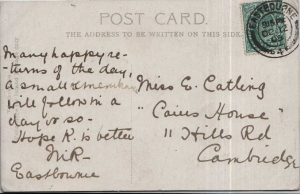 POST CARD.
THE ADDRESS TO BE WRITTEN ON THIS SIDE
Many happy re-
-turns of the day,
a small
will follow in a
day or so-
Hope R. is better
Eastbourne
Miss E. Catling
"Caius House"
" Hills Rd
Cambridge
EASTBOURNE